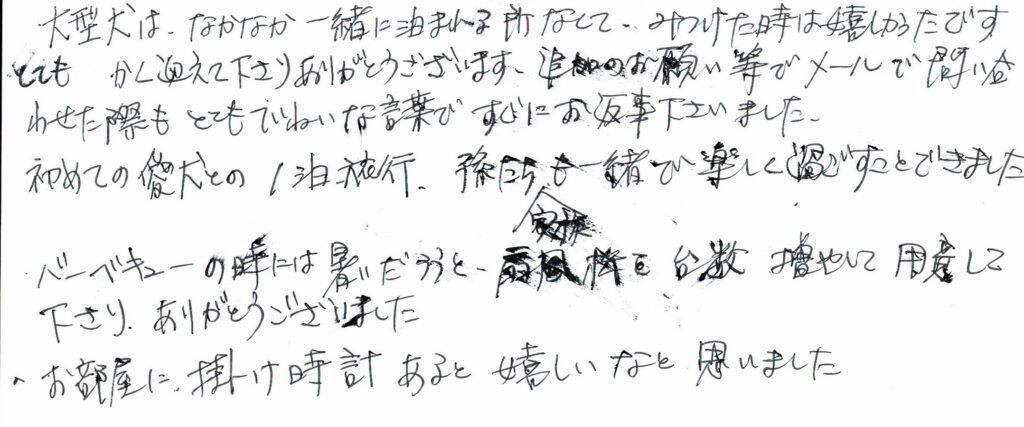 大型犬は、なかなか一緒に泊まれる所なくて、みつけた時は嬉しかったです
とても かく迎えて下さりありがとうございます、追加のお願い等でメールで問い合
わせた際も とてもていねいな言葉で すぐにお返事下さいました、
初めての愛犬との 1泊旅行、孫たちも一緒で楽しく過ごすことできました
バーベキューの時には暑いだろうと、扇風機を台数増やして用意して
下さり、ありがとうございました
・お部屋に、掛け時計あると嬉しいなと思いました